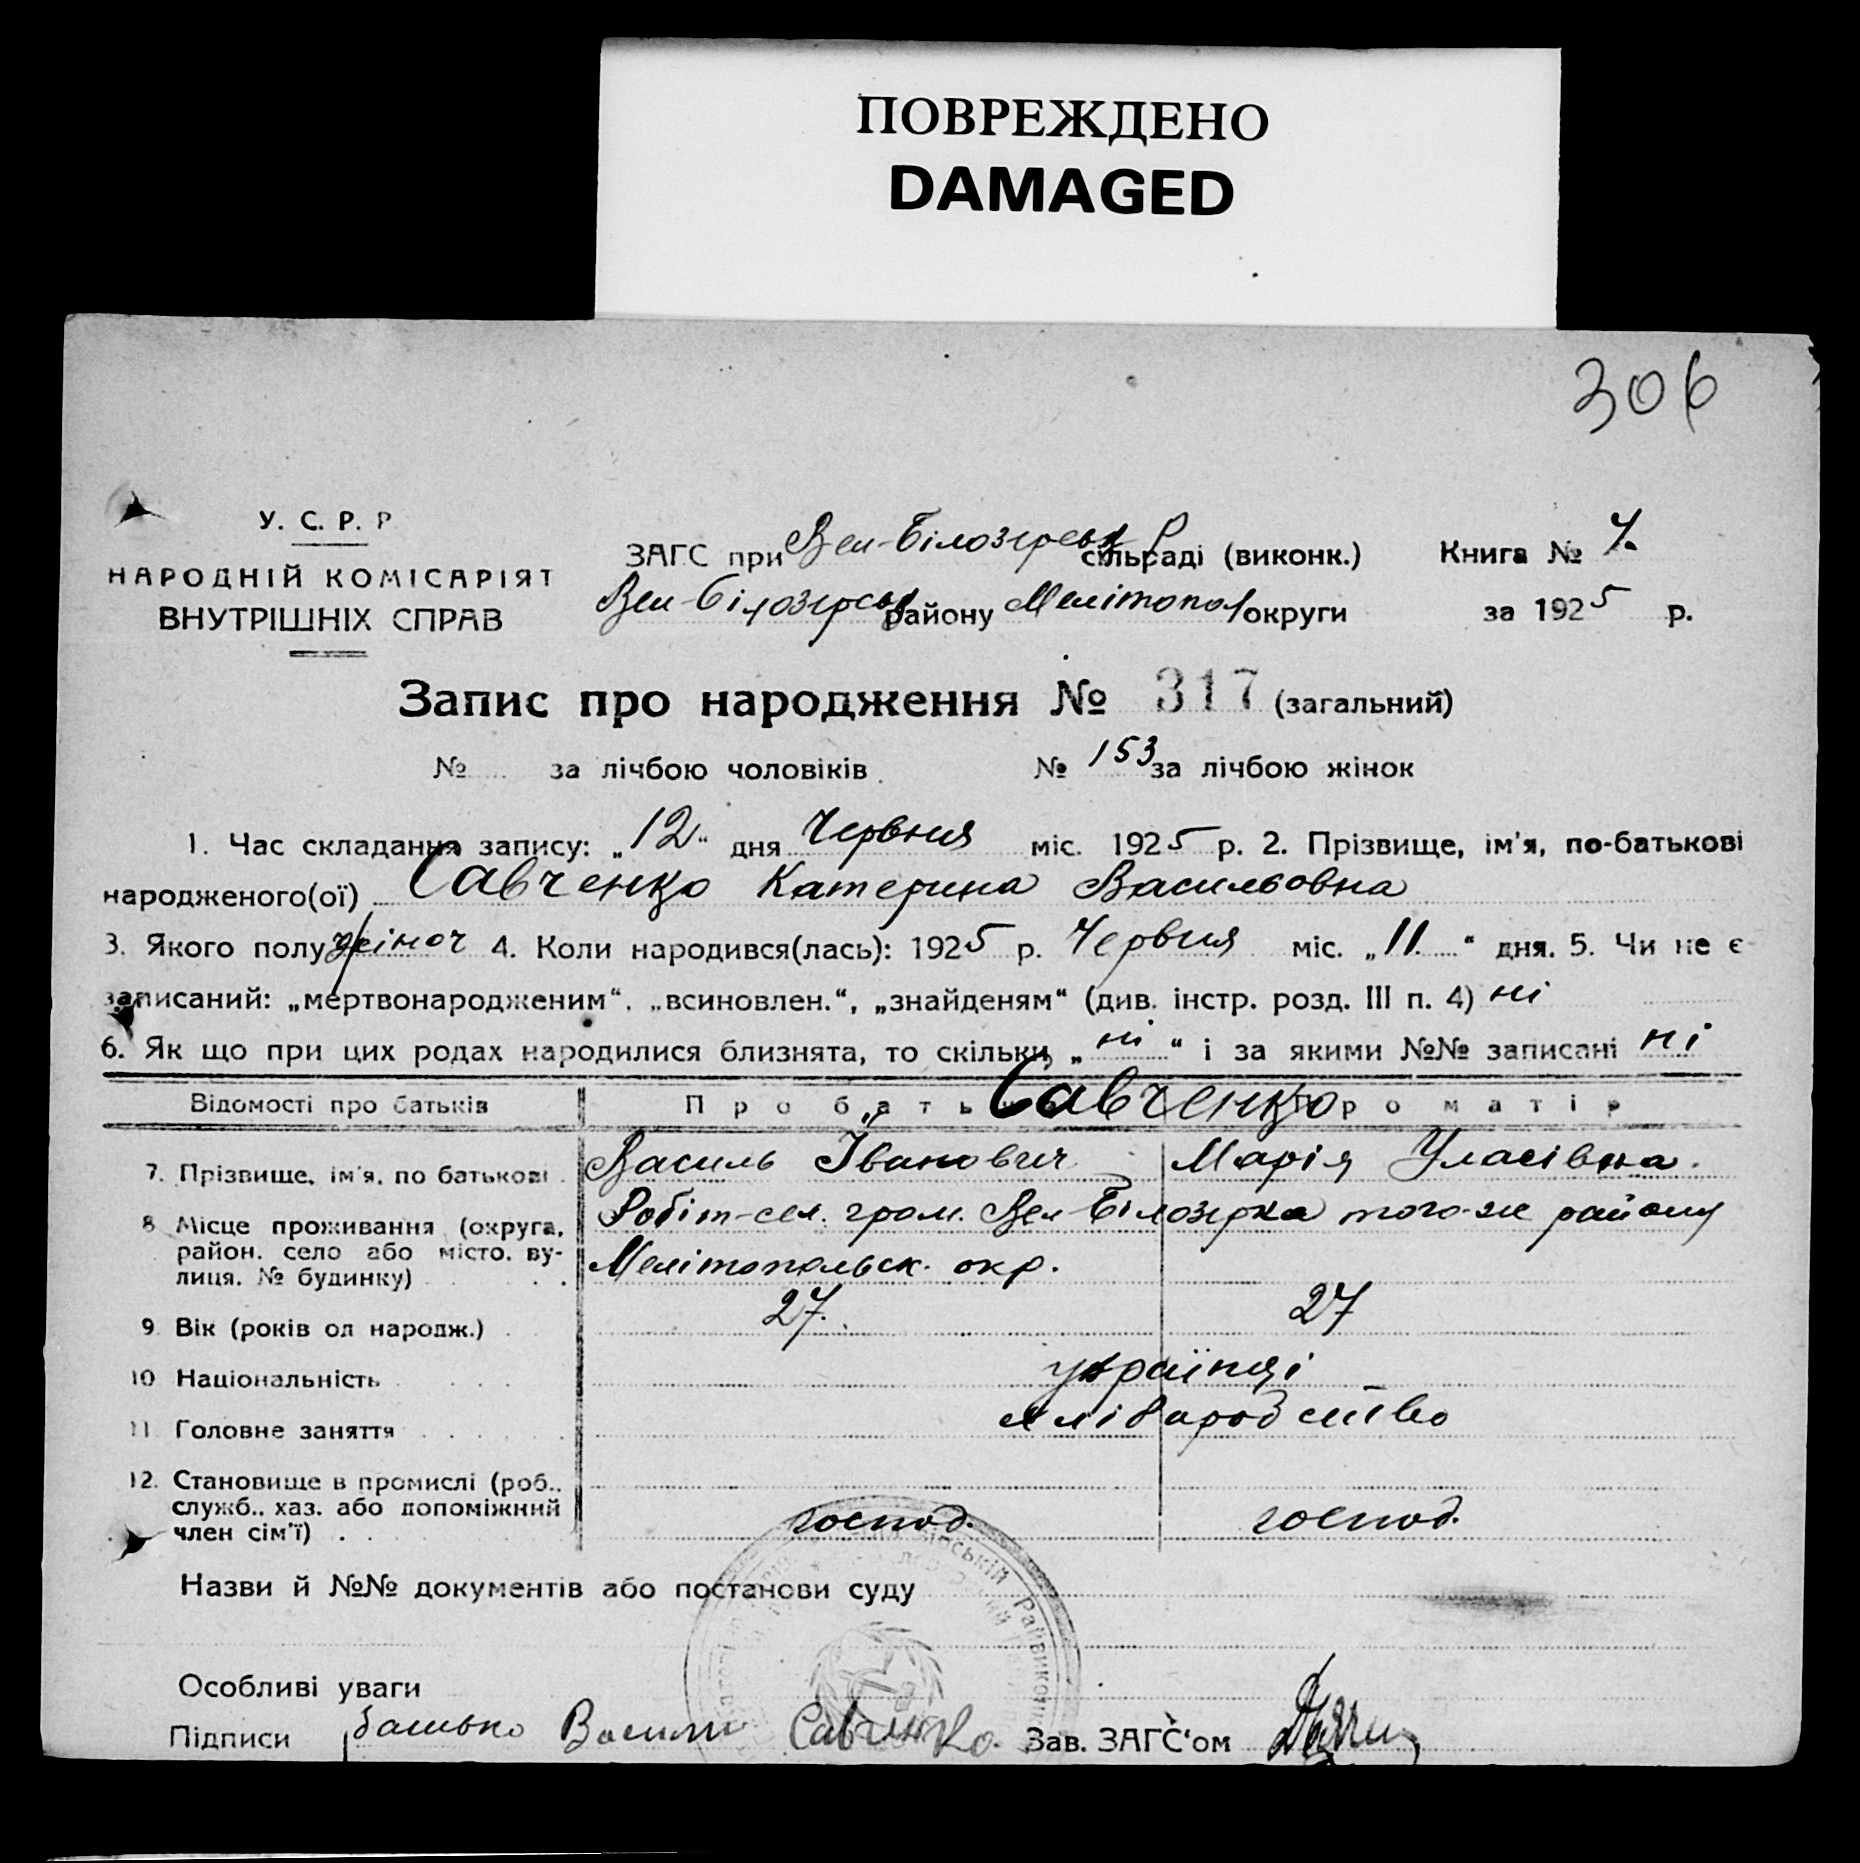 ПОВРЕЖДЕНО
DAMAGED
306
У. С. Р. Р
НАРОДНІЙ КОМІСАРІЯТ
ВНУТРІШНІХ СПРАВ
ЗАГС при Вел-Білозерськ Р сільраді (виконк.) Книга №
Вел-Білозерськ району Мелітопол округи за 1925 р.
Запис про народження № 317 (загальний)
№ за лічбою чоловіків № 153 за лічбою жінок
1. Час складання запису: „12“ дня Червня міс. 1925 р. 2. Прізвище, ім'я, по-батькові
народженого(ої) Савченко Катерина Васильовна
3. Якого полу жіноч 4. Коли народився(лась): 1925 р. Червня міс. „11.“ дня. 5. Чи не є
записаний: „мертвонародженим“, „всиновлен.“, „знайденям“ (див. інстр. розд. III п. 4) ні
6. Як що при цих родах народилися близнята, то скільки „ні“ і за якими №№ записані ні
Відомості про батьків Про батька Про матір
Савченко
7. Прізвище, ім'я, по батькові Василь Іванович Марія Уласівна.
8 Місце проживання (округа, район, село або місто, ву-
лиця, № будинку)
Робіт-сел. гром. Вел-Білозерка того-же району
Мелітопольск. окр.
9 Вік (років од народж.) 27. 27
10 Національність українці
11 Головне заняття хліборобство
12. Становище в промислі (роб.,
служб., хаз. або допоміжний
член сім'ї) господ. господ.
Назви й №№ документів або постанови суду
Райвиконк
Особливі уваги
Підписи батько Василь Савченко. Зав. ЗАГС'ом